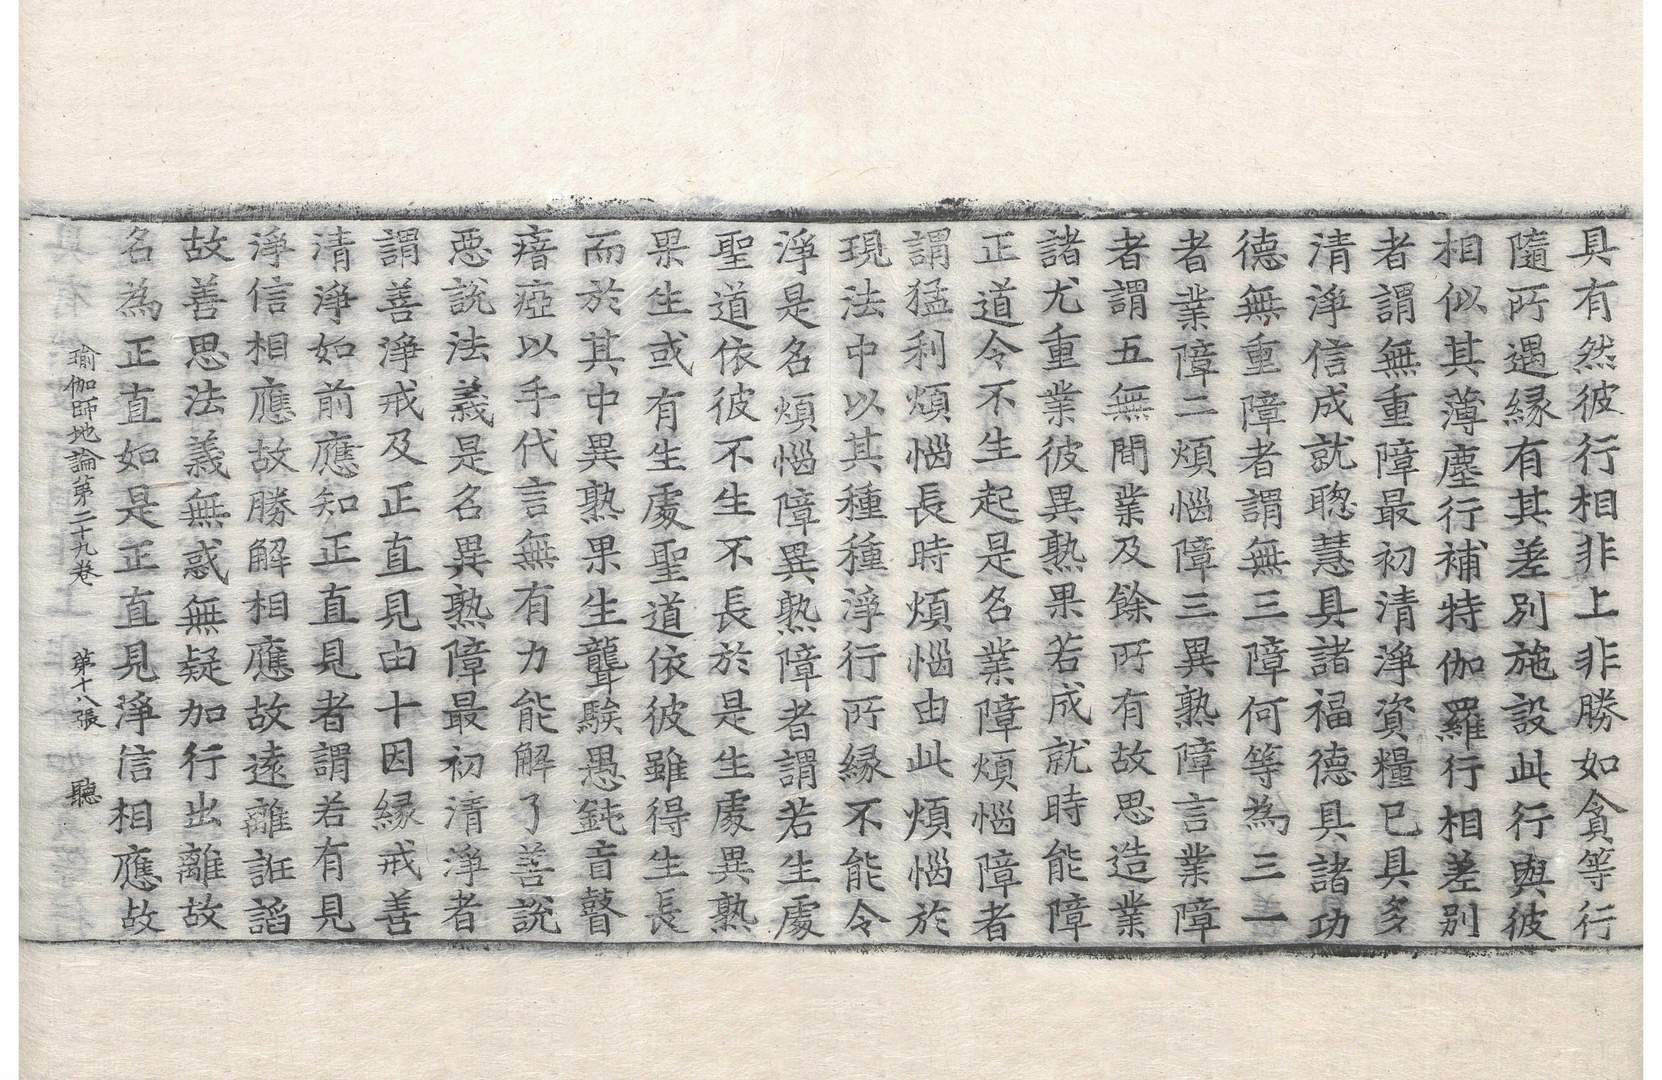 具有然彼行相非上非勝如貪等行
隨所遇縁有其差别施設此行與彼
相似其薄塵行補特伽羅行相差别
者謂無重障最初清淨資糧已具多
清淨信成就聡慧具諸福德具諸功
德無重障者謂無三障何等為三一
者業障二煩惱障三異熟障言業障
者謂五無間業及餘所有故思造業
諸尤重業彼異熟果若成就時能障
正道令不生起是名業障煩惱障者
謂猛利煩惱長時煩惱由此煩惱於
現法中以其種種淨行所縁不能令
淨是名煩惱障異熟障者謂若生處
聖道依彼不生不長於是生處異熟
果生或有生處聖道依彼雖得生長
而於其中異熟果生聾騃愚鈍盲瞽
瘖瘂以手代言無有力能解了善說
惡說法義是名異熟障最初清淨者
謂善淨戒及正直見由十因縁戒善
清淨如前應知正直見者謂若有見
淨信相應故勝解相應故遠離誑諂
故善思法義無惑無疑加行出離故
名為正直如是正直見淨信相應故
瑜伽師地論第二十九卷　第十八張　聽